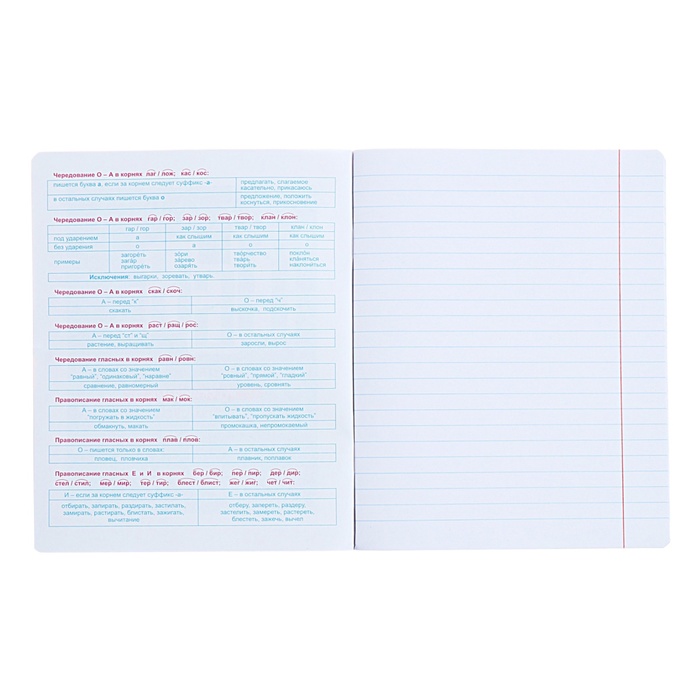 Чередование О – А в корнях лаг / лож; кас / кос:
пишется буква а, если за корнем следует суффикс -а- предлагать, слагаемое
касательно, прикасаюсь
в остальных случаях пишется буква о предложения, положить
коснуться, прикосновение
Чередование О – А в корнях гар / гор; зар / зор; твар / твор; клан / клон:
гар / гор зар / зор твар / твор клан / клон
под ударением а как слышим как слышим как слышим
без ударения о а о о
примеры загоре́ть зо́ри тво́рчество покло́н
зага́р за́рево тварь кла́няться
пригоре́ть озаря́ть твори́ть наклони́ться
Исключения: выгарки, зоревать, утварь.
Чередование О – А в корнях скак / скоч:
А – перед "к" О – перед "ч"
скакать выскочка, подскочить
Чередование О – А в корнях раст / ращ / рос:
А – перед "ст" и "щ" О – в остальных случаях
растение, выращивать заросли, вырос
Чередование гласных в корнях равн / ровн:
А – в словах со значением О – в словах со значением
"равный", "одинаковый", "наравне" "ровный", "прямой", "гладкий"
сравнение, равномерный уровень, сровнять
Правописание гласных в корнях мак / мок:
А – в словах со значением О – в словах со значением
"погружать в жидкость" "впитывать", "пропускать жидкость"
обмакнуть, макать промокашка, непромокаемый
Правописание гласных в корнях плав / плов:
О – пишется только в словах: А – в остальных случаях
пловец, пловчиха плавник, поплавок
Правописание гласных Е и И в корнях бер / бир; пер / пир; дер / дир;
стел / стил; мер / мир; тер / тир; блест / блист; жег / жиг; чет / чит:
И – если за корнем следует суффикс -а- Е – в остальных случаях
отбирать, запирать, раздирать, застилать, отберу, запереть, раздеру,
замирать, растирать, блистать, зажигать, застелить, замереть, растереть,
вычитание блестеть, зажечь, вычел